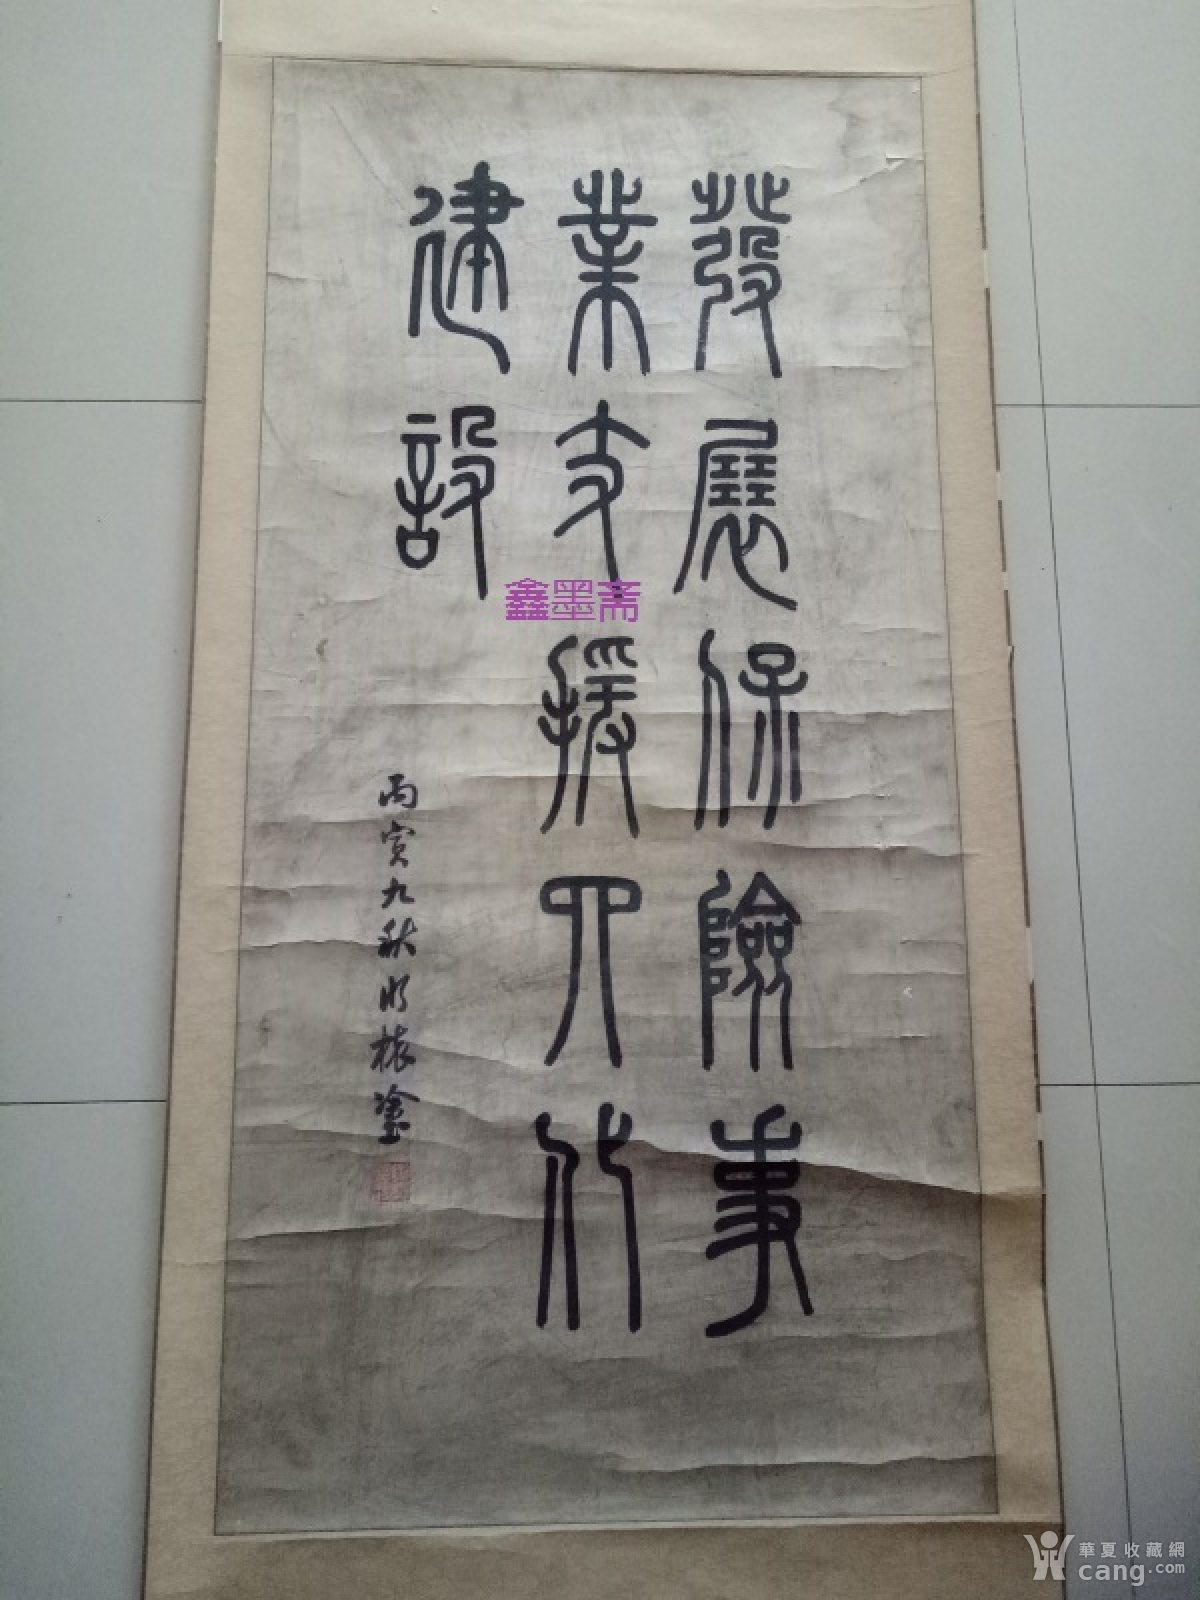 發展保險事
業支援四化
建設
丙寅九秋明榱塗
鑫墨斋
華夏收藏網
cang.com